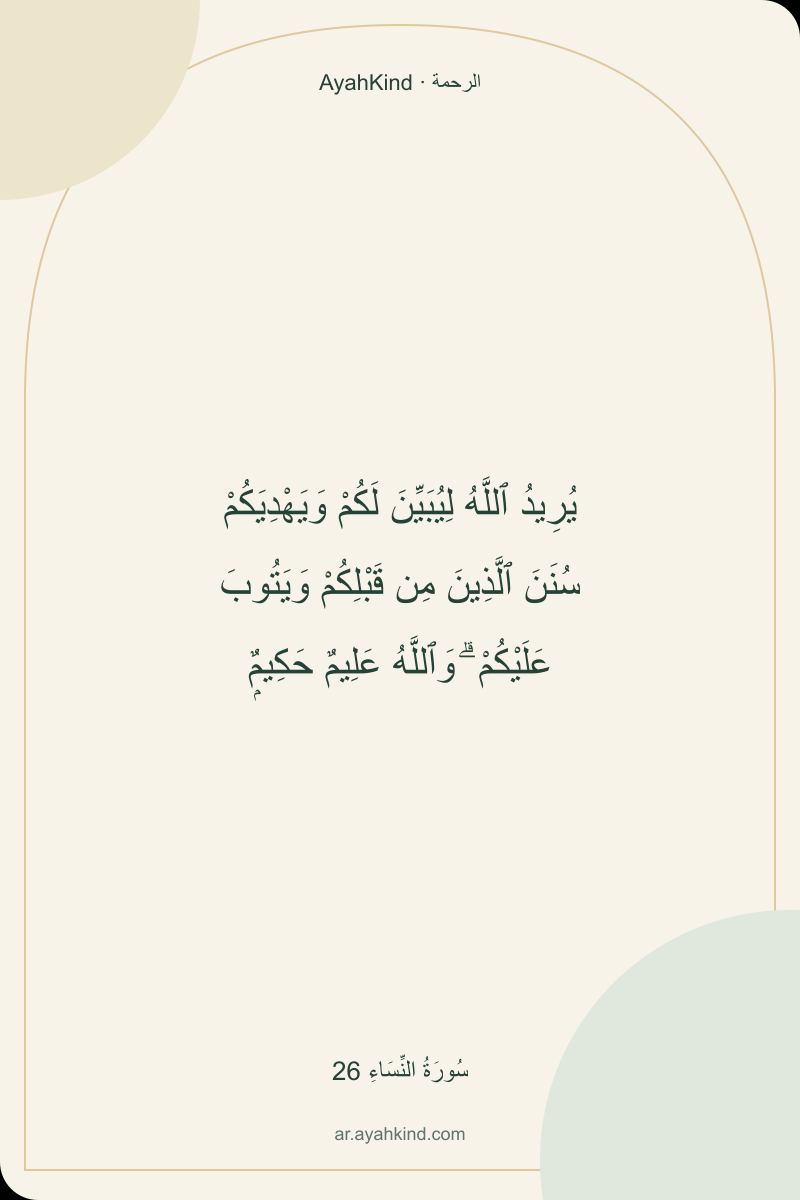 AyahKind · الرحمة
يُرِيدُ ٱللَّهُ لِيُبَيِّنَ لَكُمْ وَيَهْدِيَكُمْ
سُنَنَ ٱلَّذِينَ مِن قَبْلِكُمْ وَيَتُوبَ
عَلَيْكُمْ ۗ وَٱللَّهُ عَلِيمٌ حَكِيمٌۭ
سُورَةُ النِّسَاءِ 26
ar.ayahkind.com